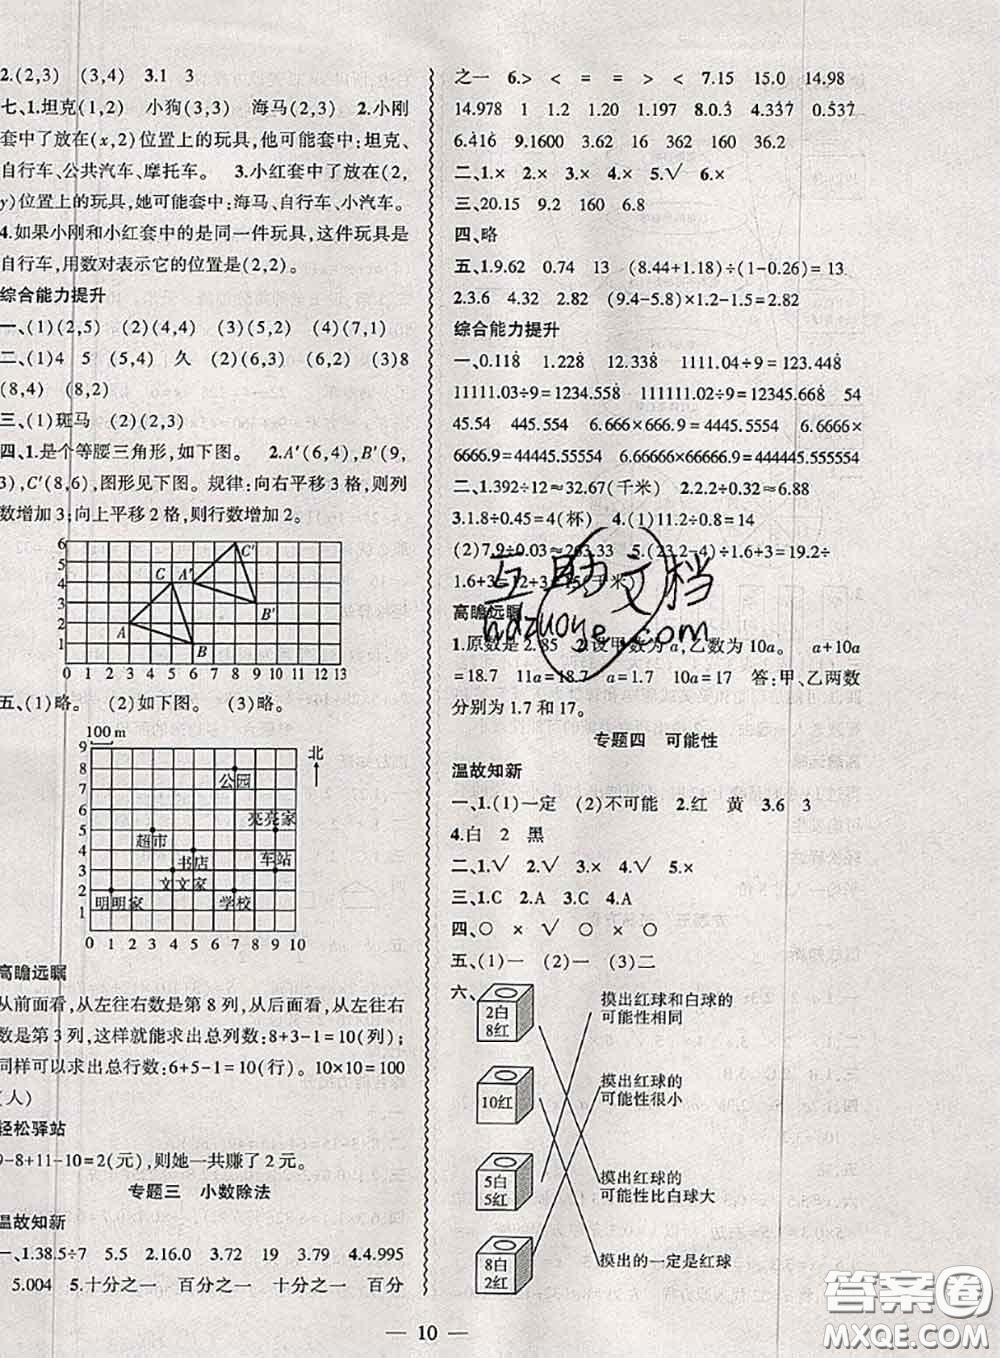 2.(2,3) (3,4) 3.1 3
七、1.坦克(1,2) 小狗(3,3) 海马(2,3) 2.小刚
套中了放在(x,2)位置上的玩具,他可能套中:坦克、
自行车、公共汽车、摩托车。 3.小红套中了放在(2,
y)位置上的玩具,她可能套中:海马、自行车、小汽车。
4.如果小刚和小红套中的是同一件玩具,这件玩具是
自行车,用数对表示它的位置是(2,2)。
综合能力提升
一、(1)(2,5) (2)(4,4) (3)(5,1) (4)(7,1)
二、(1)4 5 (5,4) 久 (2)(6,3) (6,2) (3)8
(8,4) (8,2)
三、(1)斑马 (2)(2,3)
四、1.是个等腰三角形,如下图。 2.A′(6,4),B′(9,
3),C′(8,6),图形见下图。 规律:向右平移3格,则列
数增加3;向上平移2格,则行数增加2。
6
5
4
3
2
1
C A′ C′
B′
A
B
0 1 2 3 4 5 6 7 8 9 10 11 12 13
五、(1)略。 (2)如下图。 (3)略。
100 m
9
8
7
6
5
4
3
2
1
北
公园
亮亮家
超市
书店
车站
文文家
明明家
学校
0 1 2 3 4 5 6 7 8 9 10
高瞻远瞩
从前面看,从左往右数是第8列,从后面看,从左往右
数是第3列,这样就能求出总列数:8+3-1=10(列);
同样可以求出总行数:6+5-1=10(行)。10×10=100
(人)
轻松驿站
9-8+11-10=2(元),则她一共赚了2元。
专题三 小数除法
温故知新
一、1.38.5÷7 5.5 2.16.0 3.72 19 3.79 4.4.995
5.004 5.十分之一 百分之一 十分之一 百分
之一 6.> < = = > < 7.15 15.0 14.98
14.978 1 1.2 1.20 1.197 8.0.3̇ 4.33̇7̇ 0.5̇37̇
6.4̇16̇ 9.1600 3.62 36 362 160 36.2
二、1.× 2.× 3.× 4.× 5.√ 6.×
三、20.15 9.2 160 6.8
四、略
五、1.9.62 0.74 13 (8.44+1.18)÷(1-0.26)=13
2.3.6 4.32 2.82 (9.4-5.8)×1.2-1.5=2.82
综合能力提升
一、0.118̇ 1.228̇ 12.338̇ 1111.04÷9=123.448̇
11111.03÷9=1234.558̇ 111111.02÷9=12345.668̇ 54
45.54 445.554 4445.5554 6.6×666.9=4444.5554 6.6666×
66666.9=444445.55554 6.66666×666666.9=4444445.555554
二、1.392÷12≈32.67(千米) 2.2.2÷0.32≈6.88
3.1.8÷0.45=4(杯) 4.(1)11.2÷0.8=14
(2)7.9÷0.03≈263.33 5.(23.2-4)÷1.6+3=19.2÷
1.6+3=12+3=15(千米)
高瞻远瞩
1.原数是2.85 2.设甲数为a,乙数为10a。 a+10a
=18.7 11a=18.7 a=1.7 10a=17 答:甲、乙两数
分别为1.7和17。
互助文档
hdzuoye.com
专题四 可能性
温故知新
一、1.(1)一定 (2)不可能 2.红 黄 3.6 3
4.白 2 黑
二、1.√ 2.√ 3.× 4.√ 5.×
三、1.C 2.A 3.C 4.A
四、○ × √ ○ ×
五、(1)一 (2)一 (3)二
六、
2白
8红
摸出红球和白球的
可能性相同
10红
摸出红球的
可能性很小
5白
5红
摸出红球的
可能性比白球大
8白
2红
摸出的一定是红球
10
答案圈
MXQE.COM